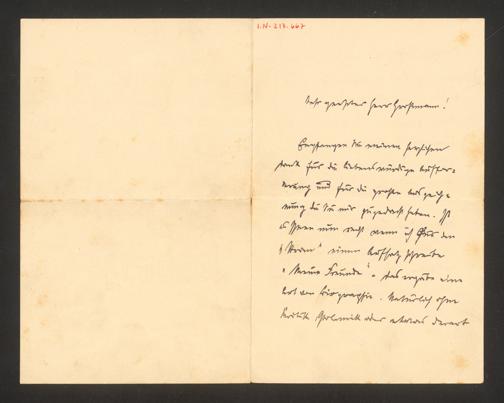 I.N. 213.667
Sehr geehrter Herr Horstmann!
Empfangen Sie meinen herzlichen
Dank für die liebenswürdige Auffor-
derung und für die große Auszeich-
nung die Sie mir zugedacht haben. Ist
es Ihnen nun recht wenn ich für den
" einen Aufsatz schreibe
„Meine Freunde". Das ergäbe eine
Art von Biographie. Natürlich ohne
Kritik Polemik oder etwas derart